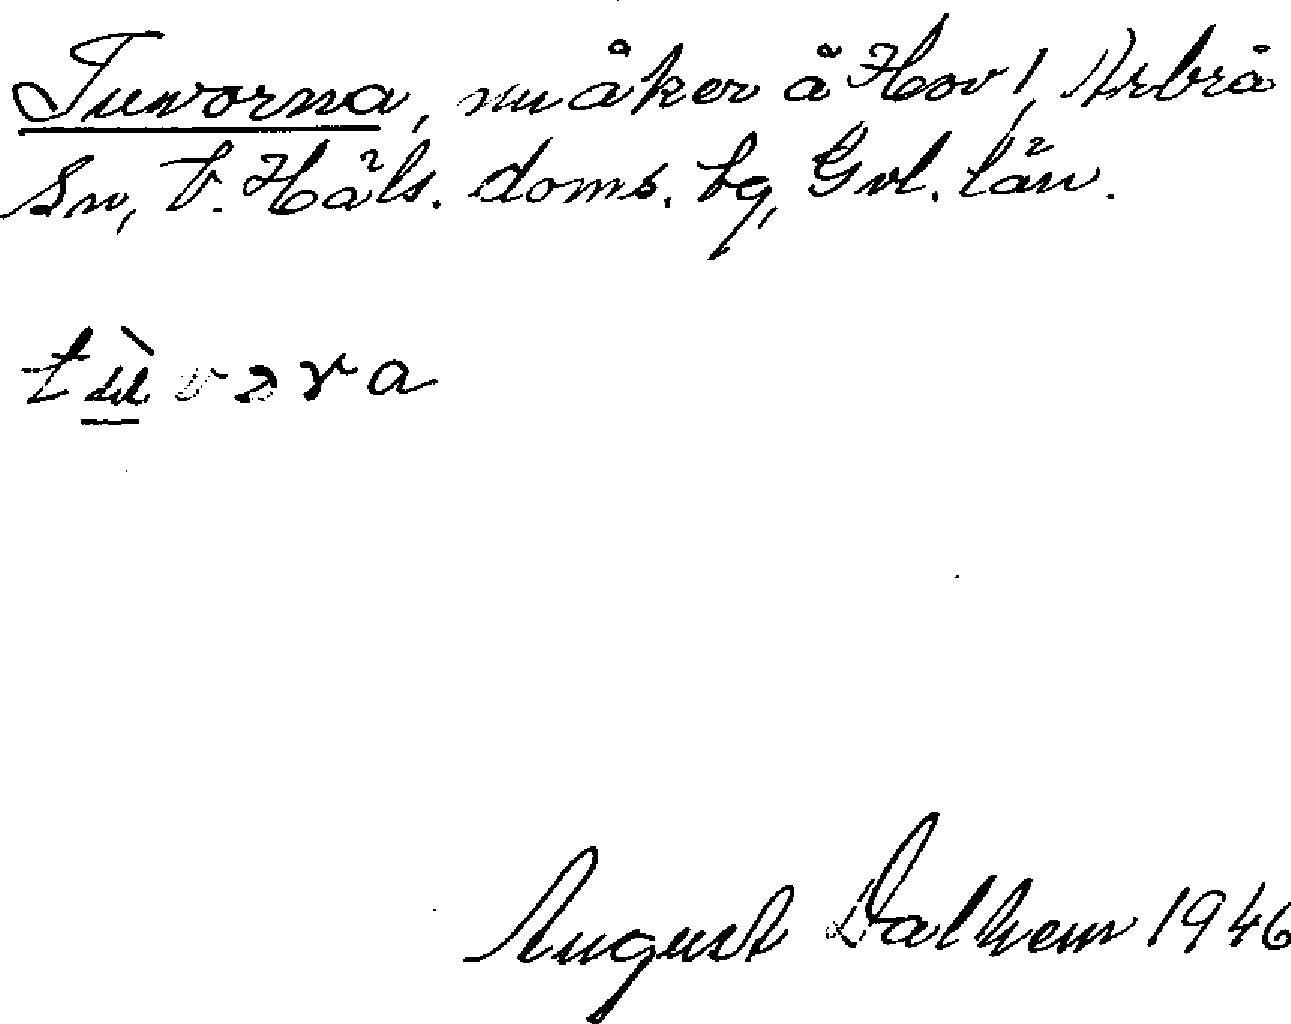 Tuvorna, nu åker å Hov 1, Arbrå
Sn, V. Häls. doms. bg, Gvl. län.
tùvəra
August Dalhem 1946